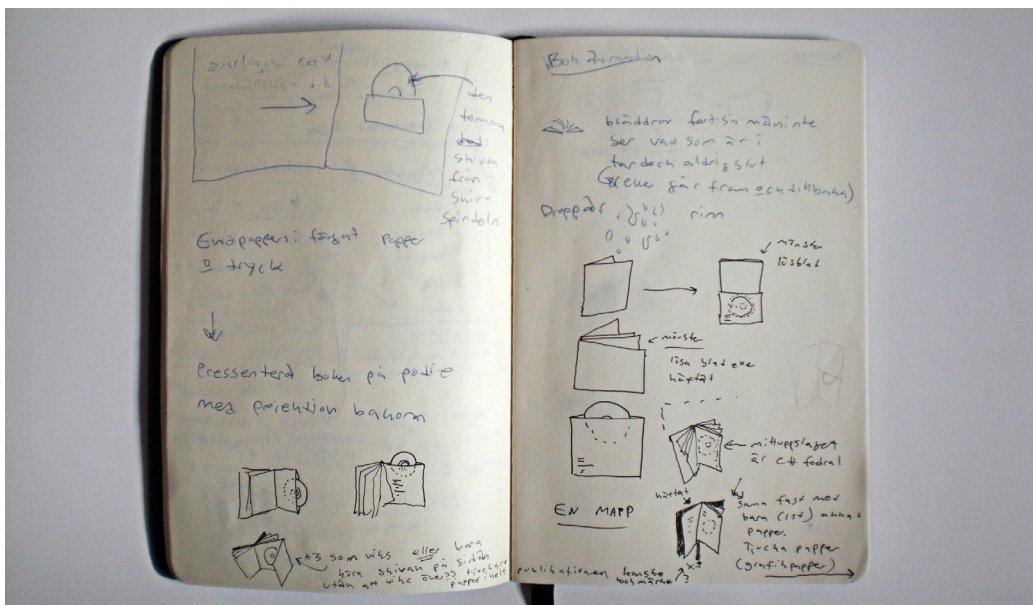 den
tomma
skivan
från
skiv-
spindeln
Endpapers i färgat papper
o tryck
Pressentera boken på podie
med projektion bakom
A3 som viks eller bara
köra skivan på sidan
utan att vika över?? tjockare
papper
Bok animation
bläddrar fort så man inte
ser vad som är i
tar dock aldrig slut
(Breke går fram och tillbaka)
Droppar rinn
mönster
lösblad
mönster
lösa blad eller
häftat
mittuppslaget
är ett fodral
EN MAPP
häftat
Sama fast med
bara (1st) annat
papper.
Tjocka papper
(grafikpapper)
publikationen kanske
bokmärke?